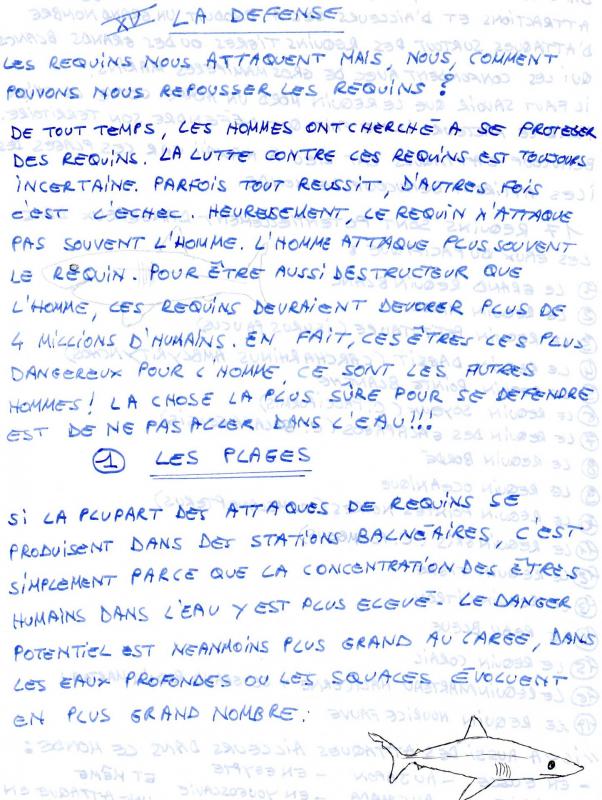 XV. LA DEFENSE
LES REQUINS NOUS ATTAQUENT MAIS, NOUS, COMMENT
POUVONS NOUS REPOUSSER LES REQUINS ?
DE TOUT TEMPS, LES HOMMES ONT CHERCHÉ A SE PROTEGER
DES REQUINS. LA LUTTE CONTRE LES REQUINS EST TOUJOURS
INCERTAINE. PARFOIS TOUT REUSSIT, D'AUTRES FOIS
C'EST L'ECHEC. HEUREUSEMENT, LE REQUIN N'ATTAQUE
PAS SOUVENT L'HOMME. L'HOMME ATTAQUE PLUS SOUVENT
LE REQUIN. POUR ÊTRE AUSSI DESTRUCTEUR QUE
L'HOMME, LES REQUINS DEVRAIENT DEVORER PLUS DE
4 MILLIONS D'HUMAINS. EN FAIT, CES ÊTRES LES PLUS
DANGEREUX POUR L'HOMME, CE SONT LES AUTRES
HOMMES ! LA CHOSE LA PLUS SÛRE POUR SE DEFENDRE
EST DE NE PAS ALLER DANS L'EAU !!!
1 LES PLAGES
SI LA PLUPART DES ATTAQUES DE REQUINS SE
PRODUISENT DANS DES STATIONS BALNÉAIRES, C'EST
SIMPLEMENT PARCE QUE LA CONCENTRATION DES ÊTRES
HUMAINS DANS L'EAU Y EST PLUS ELEVÉ. LE DANGER
POTENTIEL EST NEANMOINS PLUS GRAND AU LARGE, DANS
LES EAUX PROFONDES OU LES SQUALES ÉVOLUENT
EN PLUS GRAND NOMBRE.